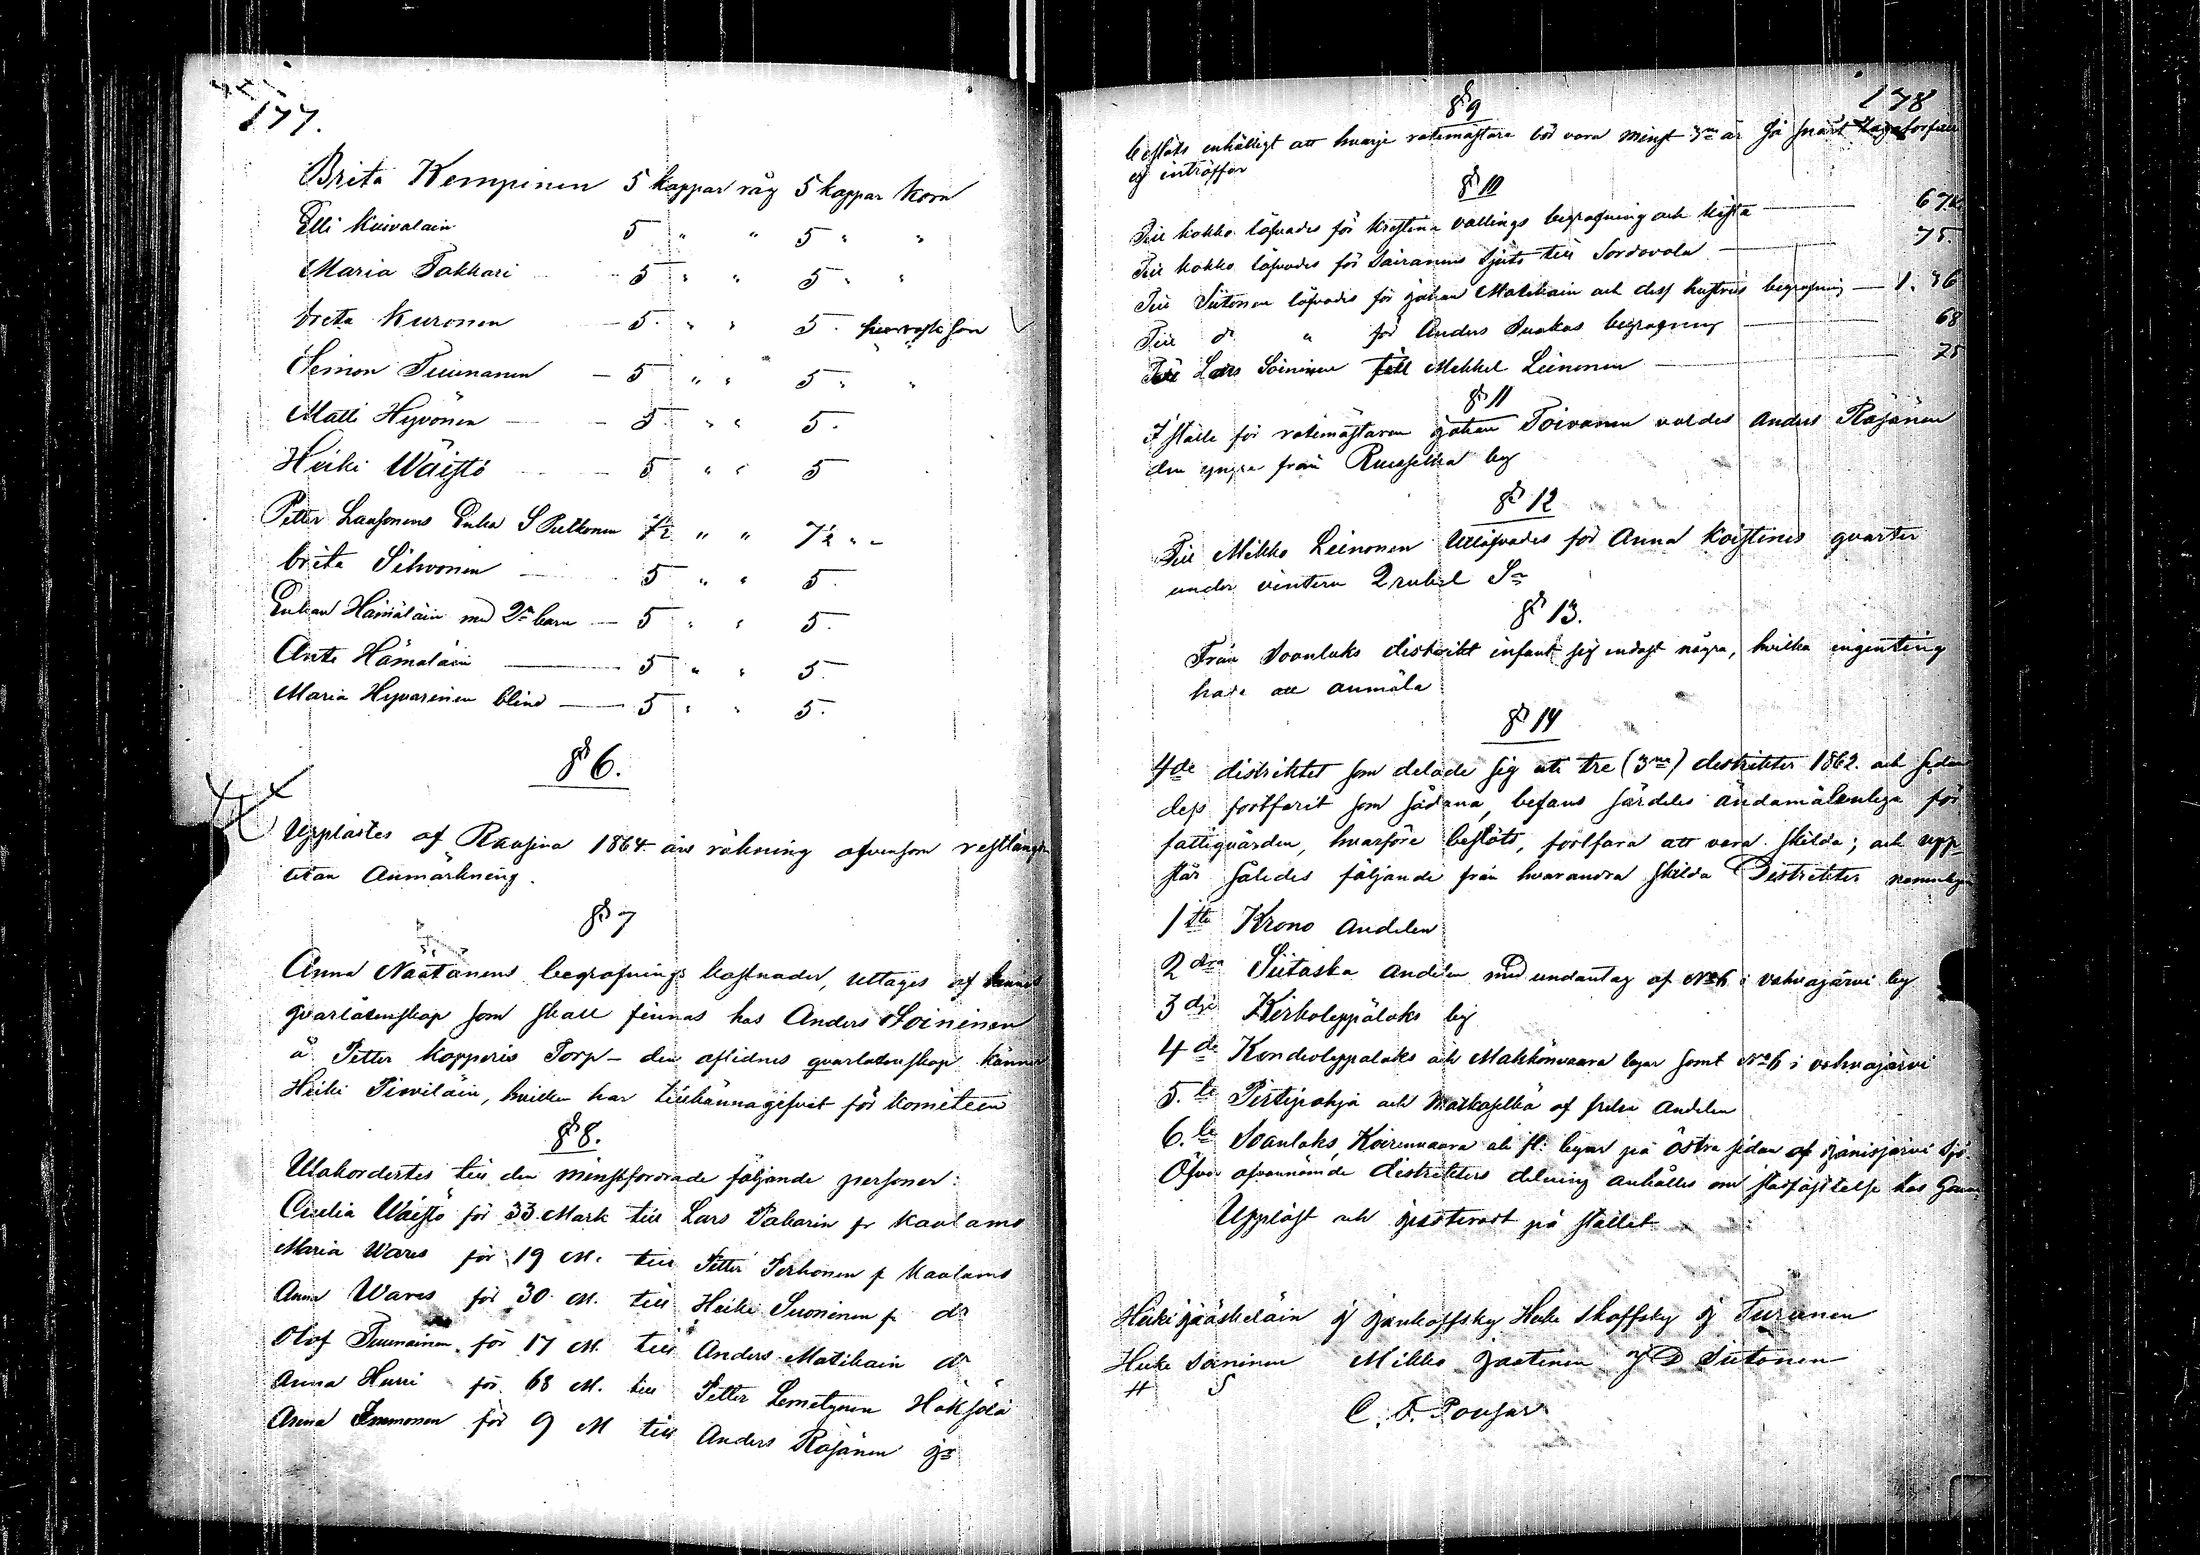 177.
Brita Kempinen 5 kappar råg 5 kappar korn
Elli Kuivalain 5 " " 5 " "
Maria Takkari 5 " " 5 " "
brita Kuronen 5 " " 5
Simon Tuunanen 5 " " 5 " "
Matti Hyvönen 5 " " 5.
Heiki Wäistö 5 " " 5
Petter Laasonens Enka S Pulkonen 7½ " " 7½ " "
brita Sihvonen 5 " " 5.
Enkan Hämäläin med 2ne barn 5 " " 5.
Anti Hämäläin 5 " " 5.
Maria Hyvarinen blind 5 " " 5.
§ 6.
Upplästes af Raasina 1864 års räkning äfvensom restlängden
utan Anmärkning.
§ 7
Anna Näätänens begrafnings kostnader, uttages af hännes
qvarlåtenskap som skall finnas hos Anders Soininen
å Petter Kopperis Torp – den aflidnes qvarlåtenskap känner
Heiki Pioviläin, hvilken har tillkännagifvit för kometeen
§ 8.
Utakordertes till den minstfordrade följande personer:
Cicelia Wäistö för 33 Mark till Lars Pakarin fr Kaalamo
Maria Wares för 19 M. till Petter Perhonen f Kaalamo
Anna Wares för 30 M. till Heiki Suoninen f do
Olof Tuunainen för 17 M. till Anders Matikain do
Anna Hurri för 68 M. till Petter Lemetynen Häksölä
Anna Immonen för 9 M till Anders Räsänen jr
178
§ 9
besläts enhälligt att hvarje rotemästare bör vara minst 3ne år så snart
ej inträffar
§ 10
Till kokko löfvades för Kristina vallings begrafning och kista 67
Till kokko löfvades för Sairanens Sjuts till Sordavala 75.
Till Siitonen löfvades för Johan Matikain och dess hustrus begrafning 1. 36
Till do " för Anders Suokas begrafning 68
Lars Soininen till Mikkel Leinonen 75
§ 11
I ställe för rotemästaren Johan Toivanen valdes Anders Räsänen
den yngre från Ruuselka by
§ 12
Till Mikko Leinonen utlofvades för Anna Koistinens qvarter
under vintern 2 rubel Sr
§ 13.
Från Soanlaks distrikt infant sig endast några, hvilka ingenting
hade att anmäla
§ 14
4de distriktet som delade sig uti tre (3ne) distrikter 1862. och sedan
dess fortfarit som sådana, befans särdeles ändamålsenliga för
fattigvården, hvarföre beslöts, fortfara att vara skilda; och upp-
står således följande från hvarandra skilda Distrikter nemligen
1sta Krono Andelen
2dra Siitaska andelen med undantag af No 6 i vahvajärvi by
3dje Kirkoleppälaks by
4de Kondioleppalaks och Makkonvaara byar samt No 6 i vahvajärvi
5.te Pertipohja och Matkaselkä af frälse Andelen
6.te Soanlaks, Koirinvaara och fl: byar på östra sidan af Jänisjärvi Sjö
Öfver ofvannämde distrikters delning anhålles om stadfästelse hos
Uppläst och justeradt på stället
Heiki jääskeläin J Jankoffsky Heike Skoffsky J Turunen
Heike Soininen Mikko Jaatinen J D Siitonen
H S
C. F. Ponsar